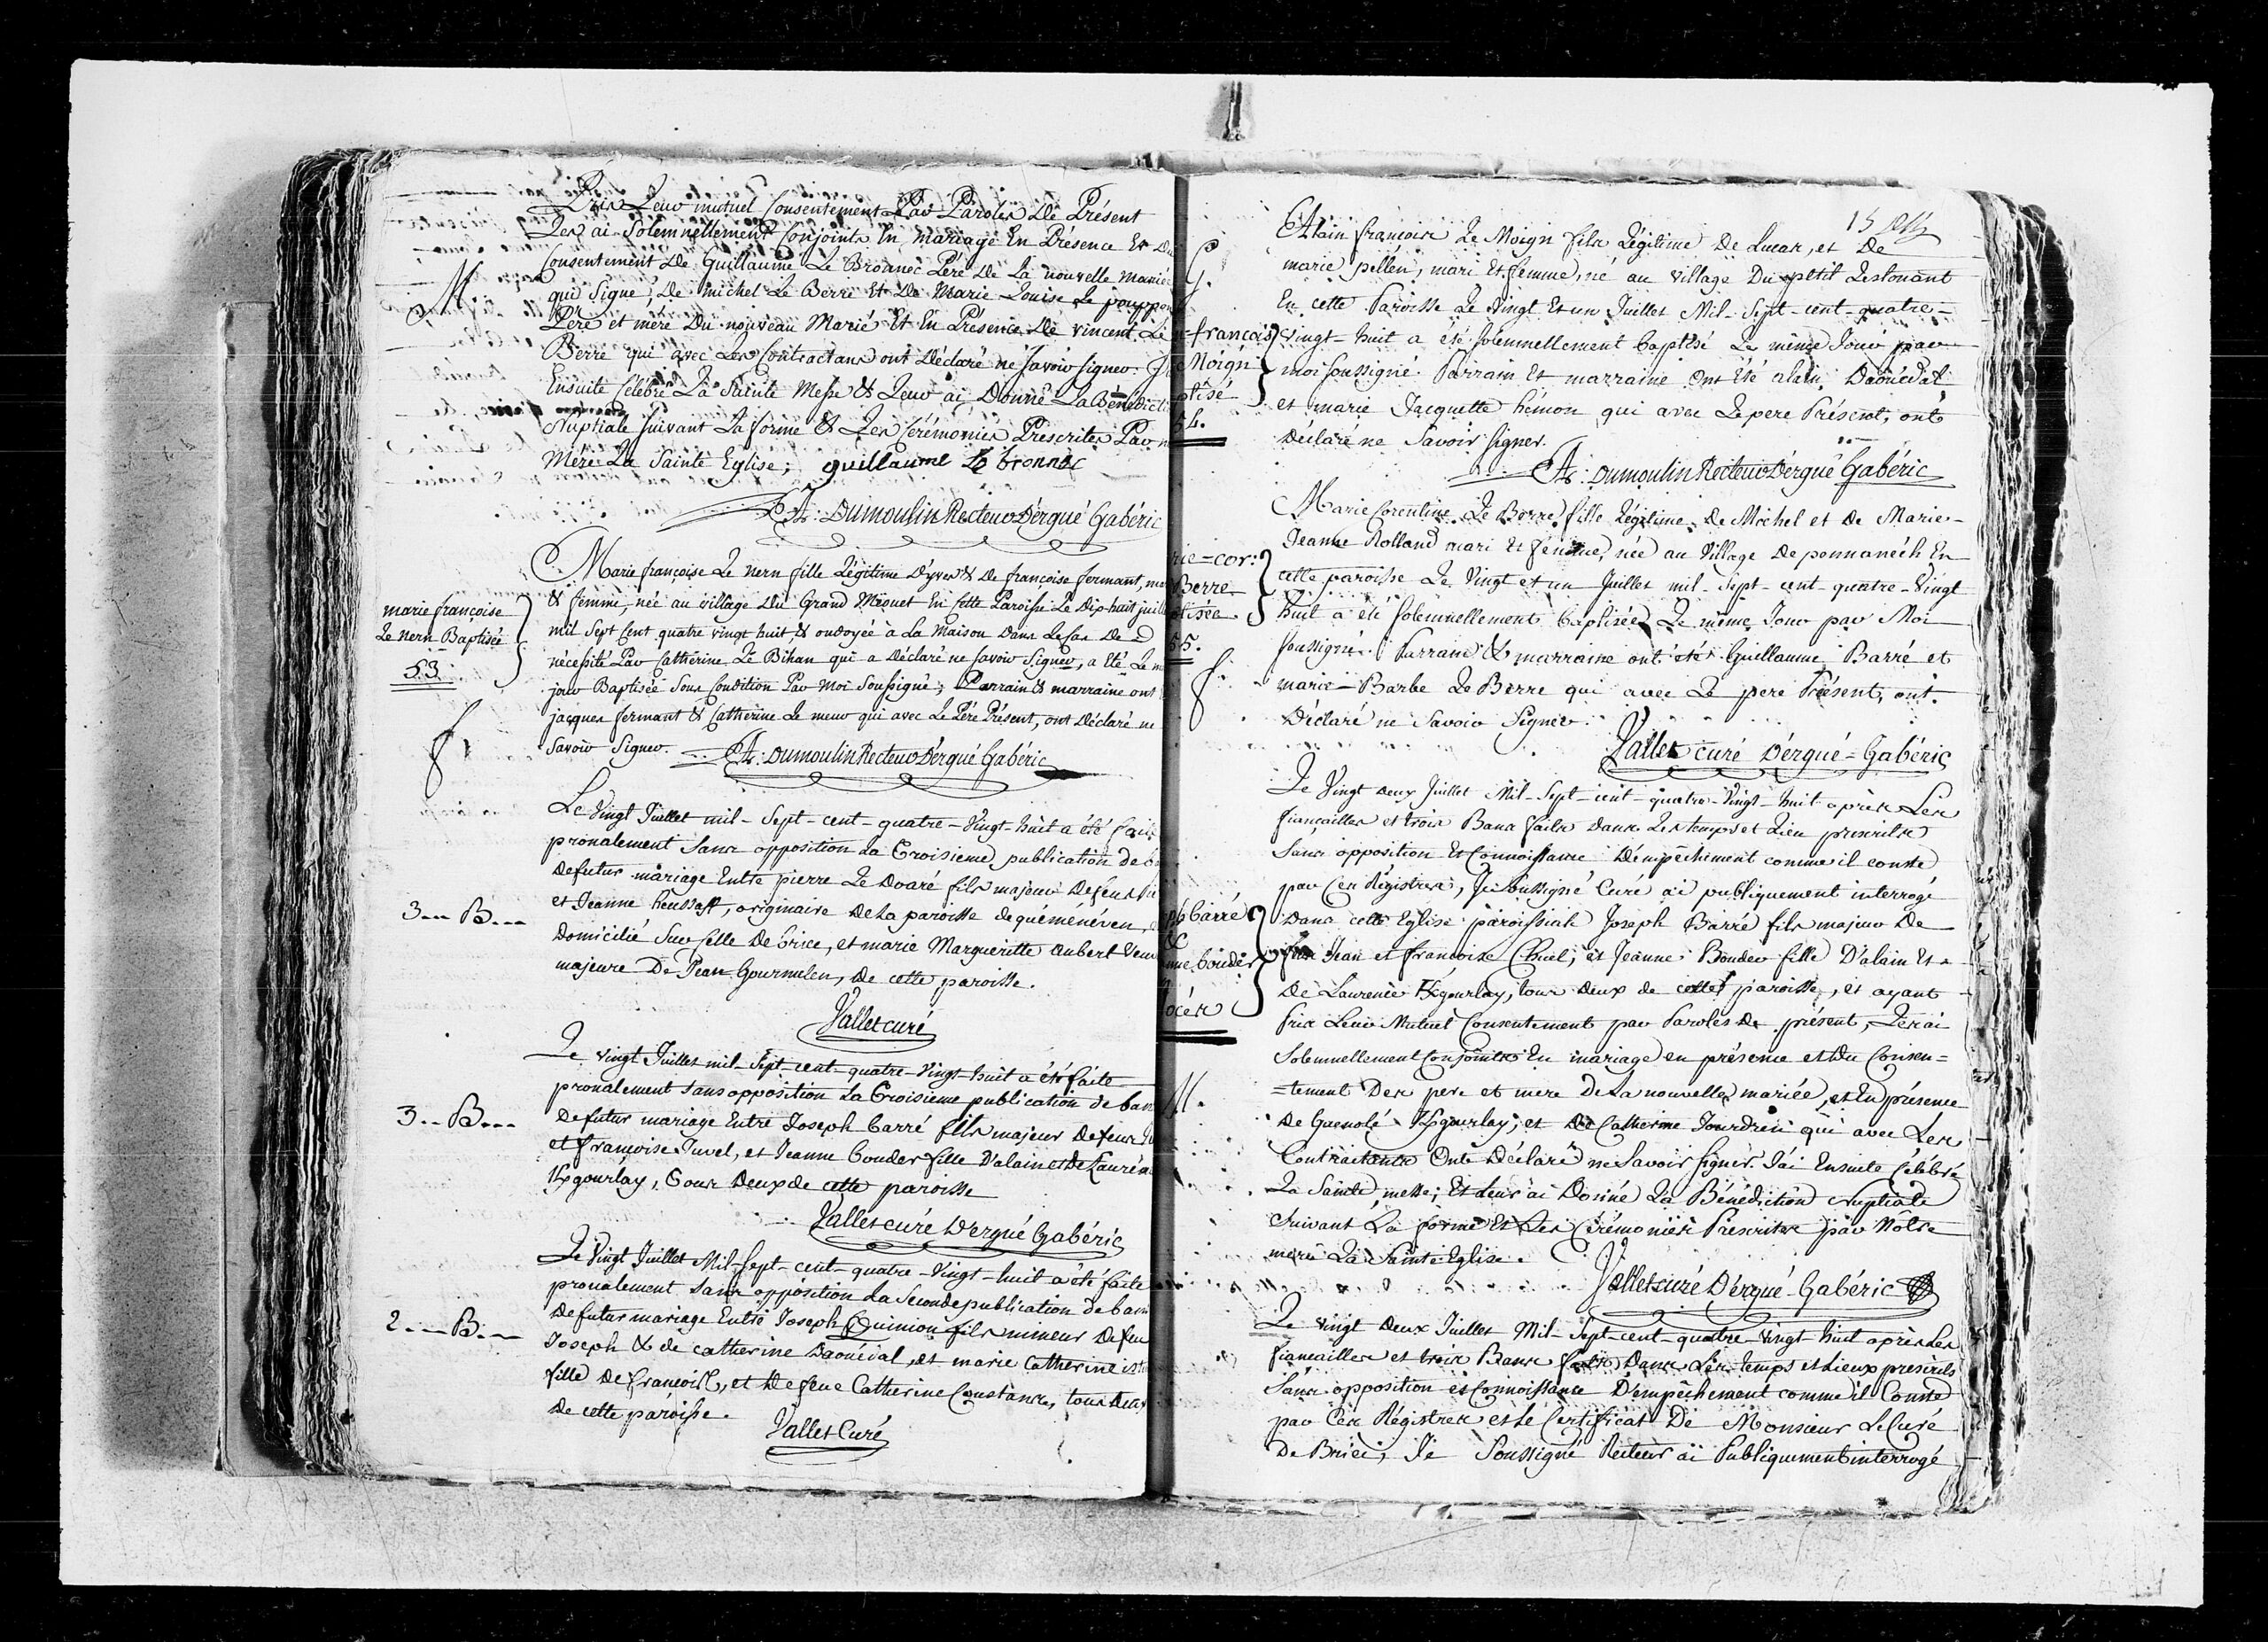 Pris Leur mutuel Consentement Par Paroles De Présent
Les ai Solemnellement Conjoints En mariage En Présence Et Du
Consentement De Guillaume Le Broanec Pére De La nouvelle Marié
M
qui Signe, De michel Le Berre Et De Marie Louise Le pouppon
Pére et mére Du nouveau Marié Et En Présence De vincent Le
Berre qui avec Les Contractans ont Déclaré ne Savoir Signer. J
Ensuite Célébré La Sainte Messe & Leur ai Donné La Bénédicti
Nuptiale Suivant La forme & Les Cérémonies Prescrites Par n
Mére La Sainte Eglise; guillaume Le bronnec
A: Dumoulin Recteur D'ergué Gabéric
Marie françoise Le nern fille Légitime D'yves & De françoise fermant, ma
& femme, née au village Du Grand Mégouet En Cette Paroisse Le Dix-huit juill
marie françoise
Le nern Baptisée
53
mil Sept Cent quatre vingt huit & ondoyée à La Maison Dans Le Cas De
nécessité Par Catherine Le Bihan qui a Déclaré ne Savoir Signer, a Eté Le m
jour Baptisée Sous Condition Par Moi Soussigné; Parrain & marraine ont
jacques fermant & Catherine Le meur qui avec Le Pére Présent, ont Déclaré ne
f
Savoir Signer. A: Dumoulin Recteur D'ergué Gabéric
Le Vingt Juillet mil-Sept-cent-quatre-Vingt-huit a été fait
pronalement Sans opposition La Troisieme publication de b
De futur mariage Entre pierre Le Doaré fils majeur De feu
et Jeanne heussaff, originaire De La paroisse de quéménéven,
3-- B--
Domicilié Sur Celle De brice, et marie Marguerite aubert Veuv
majeure De Jean Gourmelen, De cette paroisse.
Vallet curé
Le Vingt Juillet mil-Sept-cent-quatre-Vingt-huit a été faite
pronalement Sans opposition La Troisieme publication de ban
3-- B--
De futur mariage Entre Joseph barré fils majeur De feux J
et françoise Juvel, et Jeanne bouder fille D'alain et De Lauren
Kgourlay, Tous Deux de cette paroisse
Vallet curé D'ergué Gabéric
Le Vingt Juillet Mil-Sept-cent-quatre-Vingt-huit a été faite
pronalement Sans opposition La Seconde publication de ban
2--- B---
De futur mariage Entre Joseph Quinion fils mineur De feu
Joseph & de catherine Daouédal, et marie Catherine
fille De François, et De feue Catherine Constance, tous Deu
De cette paroisse.
Vallet Curé
15
Alain françois Le Moign fils Légitime De Lucas, et De
G.
marie pellen, mari Et femme, né au Village Du petit Lestonant
En cette Paroisse Le Vingt Et un Juillet Mil-Sept-cent-quatre-
=françois
Vingt-huit a été Solennellement baptisé Le même Jour par
Moign
moi Soussigné. Parrain Et marraine Ont Eté alain Daouédal
ptisé
54.
et marie Jacquette hémon qui avec Le pere Présent, ont
Déclaré ne Savoir Signer.
A: Dumoulin Recteur D'ergué Gabéric
Marie Corentine Le Berre fille Légitime De Michel et De Marie-
rie=cor:
Berre
tisée
55.
Jeanne Rolland mari Et femme, née au Village De pennanéch En
cette paroisse Le Vingt et un Juillet mil-Sept-cent quatre-Vingt
huit a été Solemnellement baptisée Le même Jour par Moi
Soussigné. Parrain & marraine ont été Guillaume Barré et
f.
marie-Barbe Le Berre qui avec Le pere Présent, ont
Déclaré ne Savoir Signer.
Vallet curé D'ergué-Gabéric
Le Vingt Deux Juillet Mil-Sept-cent-quatre-Vingt-huit après Les
fiançailles et trois Bans faits Dans Les temps et Lieu prescrits
Sans opposition Et Connoissance D'empêchement comme il conste
par Ces Régistres, Je Soussigné Curé ai publiquement interrogé
ph barré
&
nne bouder
Dans cette Eglise paroissiale Joseph Barré fils majeur De
Jean et françoise Chuel; et Jeanne Bouder fille D'alain Et
De Laurence Kgourlay, tous Deux de cette paroisse, et ayant
pris Leur Mutuel Consentement par Paroles De présent, Les ai
Solemnellement Conjoints En mariage en présence et Du Consen=
M.
=tement Des pere et mere De La nouvelle mariée, et En présence
De Guenolé Kgourlay; et De Catherine Jourdren qui avec Les
Contractants Ont Déclaré ne Savoir Signer. J'ai Ensuite Célébré
La Sainte messe; Et Leur ai Donné La Bénédiction Nuptiale
Suivant La forme Et Les Cérémonies Prescrites par Nôtre
mere La Sainte Eglise.
Vallet curé D'ergué-Gabéric
Le Vingt Deux Juillet Mil-Sept-cent-quatre-Vingt huit après Les
fiancailles et trois Bans faits Dans Les temps et Lieux prescrits
Sans opposition et Connoissance D'empêchement comme il Conste
par Ces Régistres et Le Certificat De Monsieur Le Curé
De Briec, Je Soussigné Recteur ai Publiquement interrogé